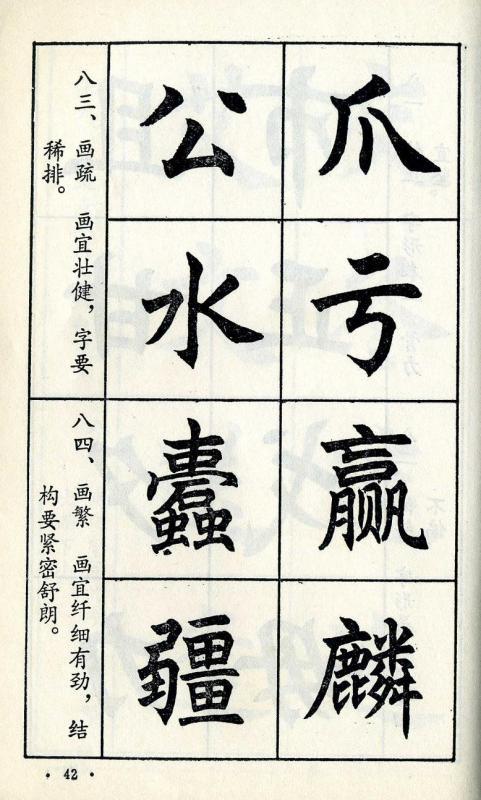 爪亏
公水
八三、画疏 画宜壮健，字要
稀排。
赢麟
蠹疆
八四、画繁 画宜纤细有劲，结
构要紧密舒朗。
·42·